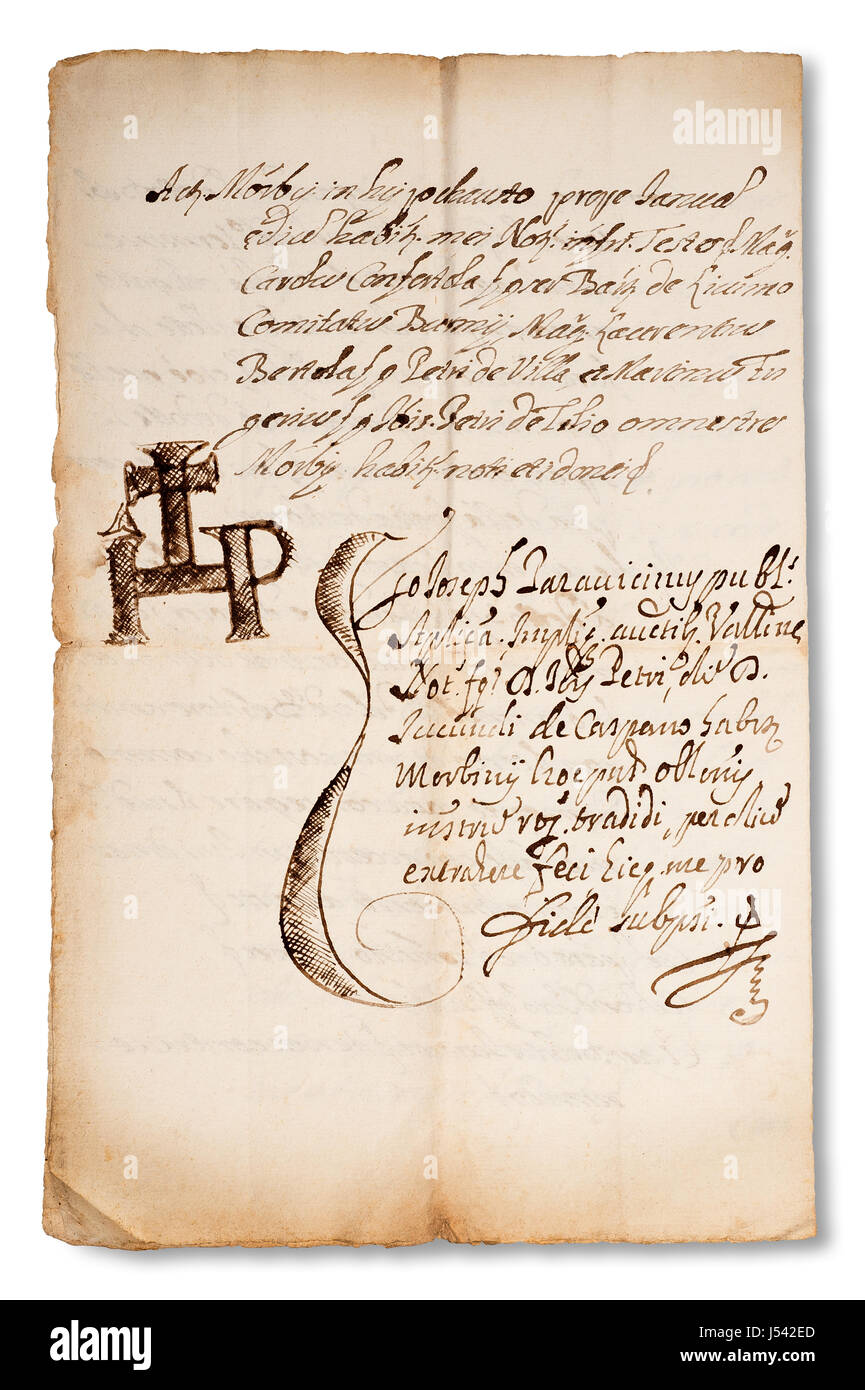 Act. Morbij in hypochausto prope Januas
edius habit. mei Not. infr. Testes Mag.
Carolus Confortola f. q. ser Bat. de Licimo
Comitatus Burmij, Mag. Laurentius
Bertola f. q. Petri de Villa et Martinus In
gerius f. q. Petri de Tilio omnes tres
Morbij habit. noti et idonei
HP
Ego Joseph Paravicinus publ.
Aplica. Imp. auctth. Valline
Not. f. q. D. Petri, olim D.
Jucundi de Caspano habit.
Morbinij hoc pnd. oblonis
instrum rog. tradidi, per alium
extrahere feci hicq. me pro
fide subpsi.
alamy
a
J542ED
www.alamy.com